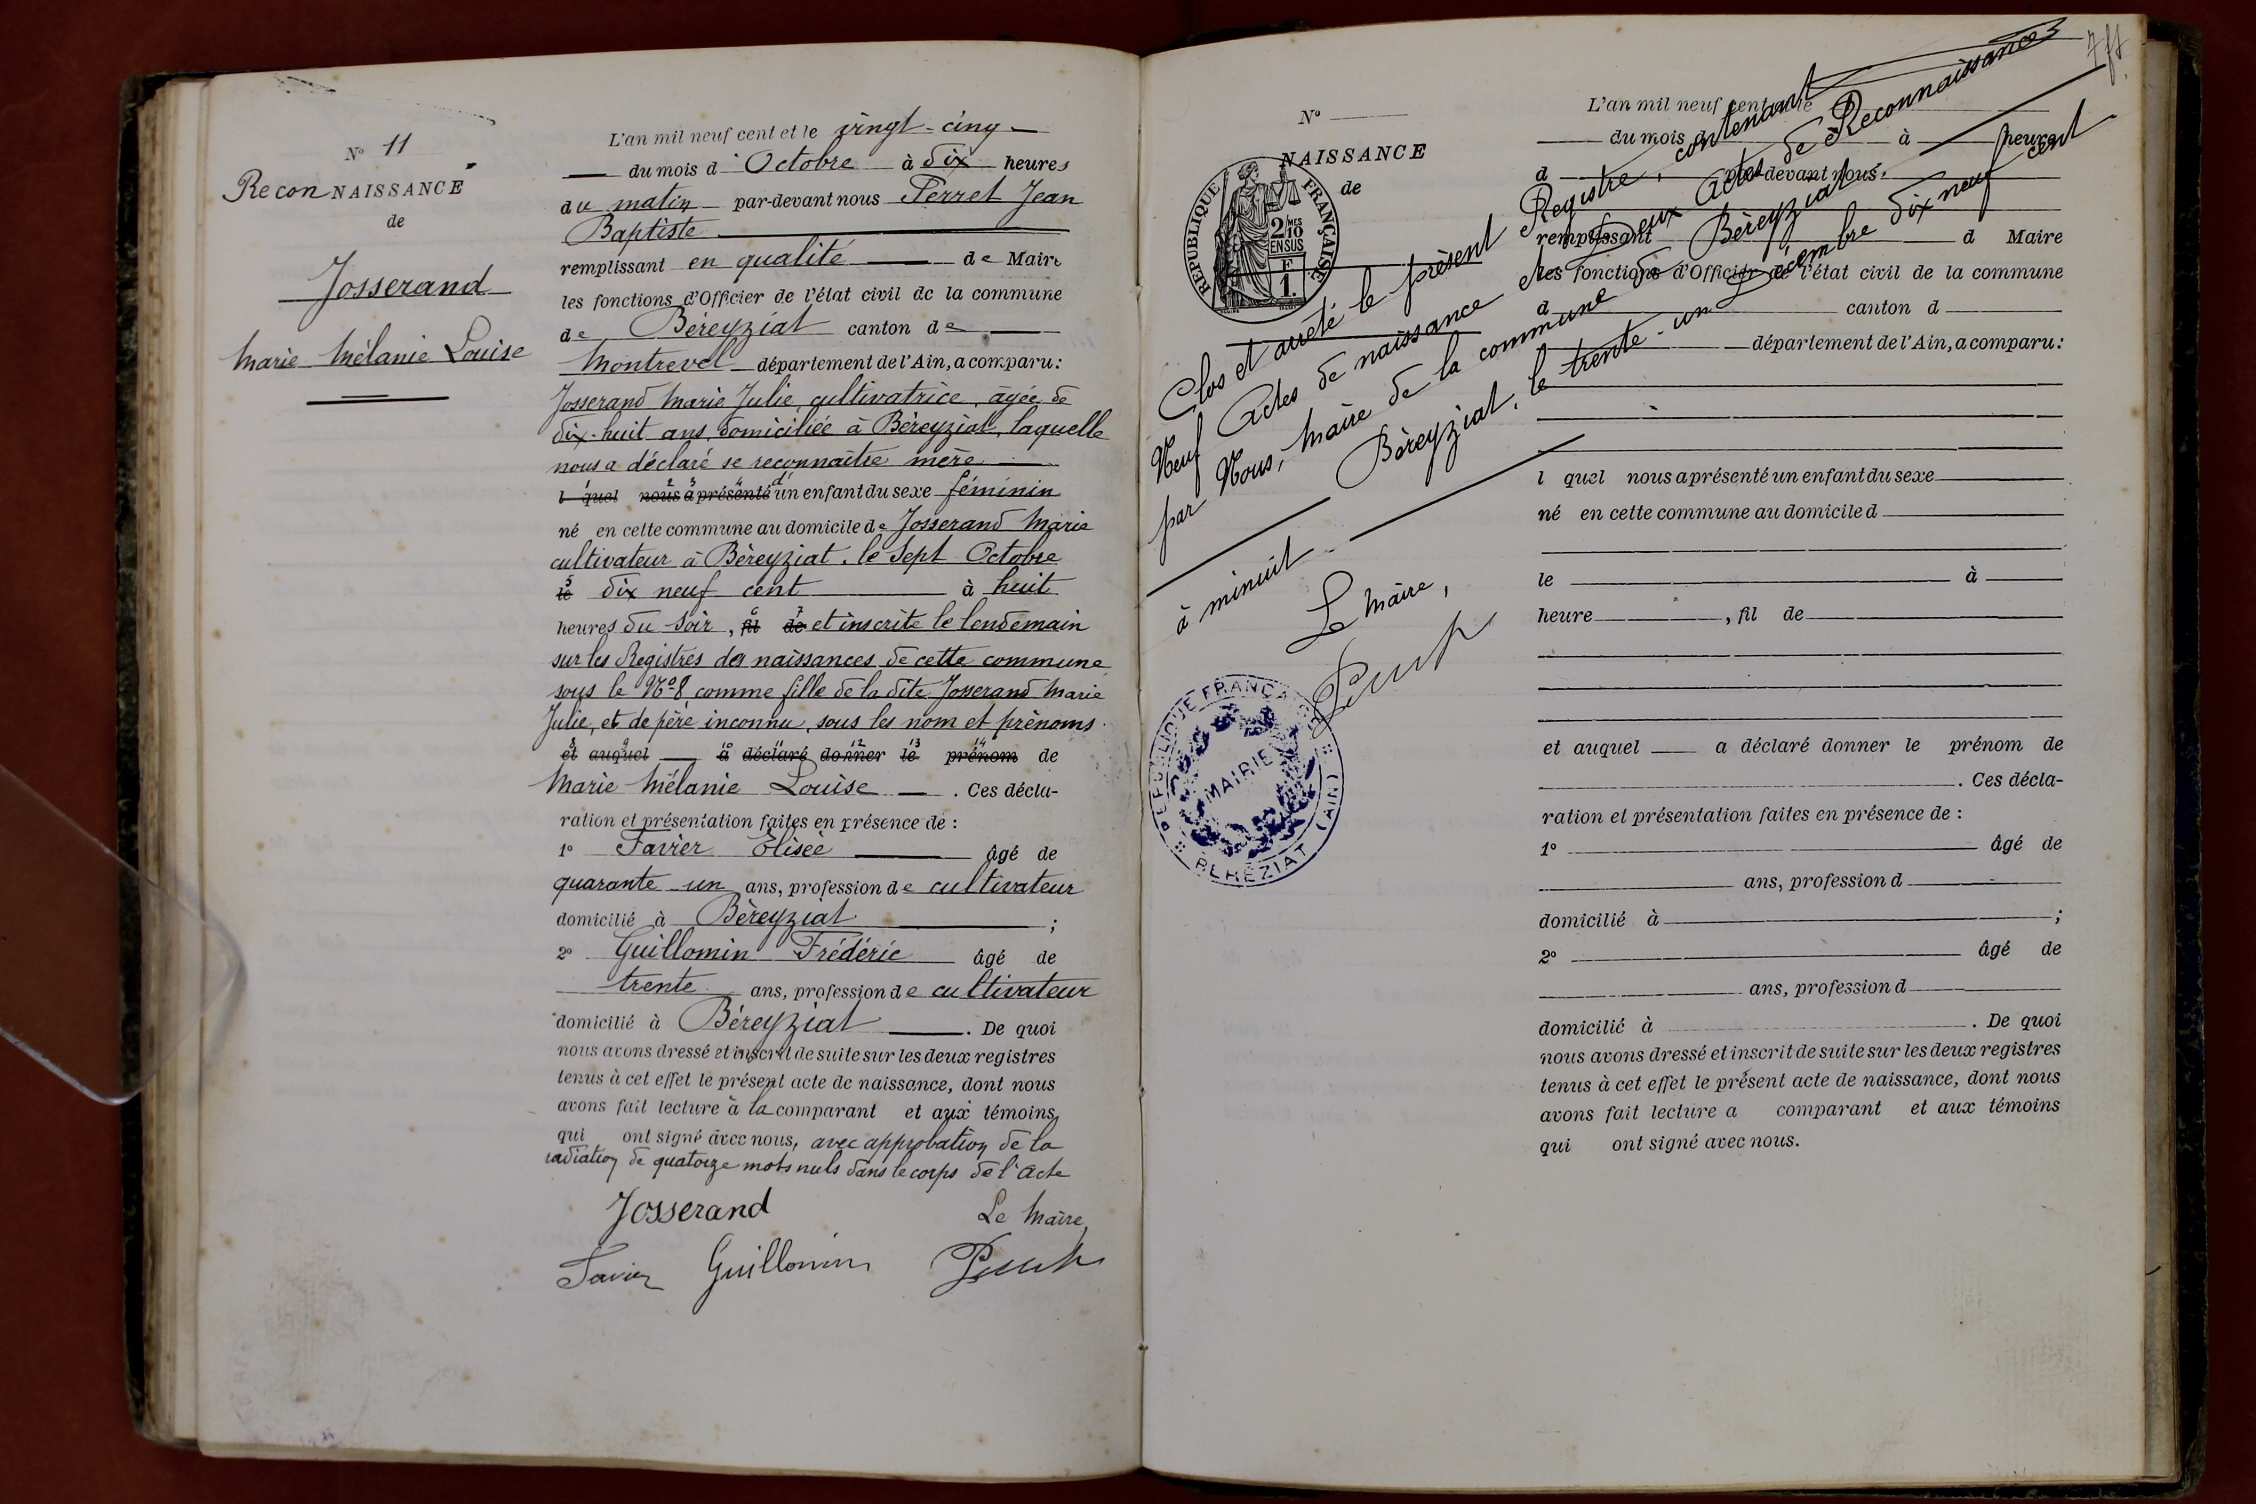 N° 11
ReconNAISSANCE
de
Josserand
Marie Mélanie Louise
L'an mil neuf cent et le vingt-cinq
du mois d'Octobre à dix heures
du matin par-devant nous Perret Jean
Baptiste
remplissant en qualité de Maire
les fonctions d'Officier de l'état civil de la commune
de Béreyziat canton de
Montrevel département de l'Ain, a comparu:
Josserand Marie Julie, cultivatrice, âgée de
dix-huit ans, domiciliée à Béreyziat, laquelle
nous a déclaré se reconnaître mère
l quel nous a présenté d'un enfant du sexe féminin
né en cette commune au domicile de Josserand Marie
cultivateur à Béreyziat, le sept Octobre
le dix neuf cent à huit
heures du soir, fil de et inscrite le lendemain
sur les Registres des naissances de cette commune
sous le N° 8 comme fille de la dite Josserand Marie
Julie, et de père inconnu, sous les nom et prénoms
et auquel a déclaré donner le prénom de
Marie Mélanie Louise . Ces décla-
ration et présentation faites en présence de :
1° Favier Elisée âgé de
quarante un ans, profession de cultivateur
domicilié à Béreyziat ;
2° Guillomin Frédéric âgé de
trente ans, profession de cultivateur
domicilié à Béreyziat . De quoi
nous avons dressé et inscrit de suite sur les deux registres
tenus à cet effet le présent acte de naissance, dont nous
avons fait lecture à la comparant et aux témoins
qui ont signé avec nous, avec approbation de la
radiation de quatorze mots nuls dans le corps de l'acte
Josserand Le Maire,
Favier Guillomin Perret
N°
NAISSANCE
de
REPUBLIQUE FRANÇAISE
2/10 MES
EN SUS
F
1.
Clos et arrêté le présent Registre, contenant
Neuf Actes de naissance et Deux Actes de Reconnaissances
par Nous, Maire de la commune de Béreyziat
Béreyziat, le trente-un Décembre dix neuf cent
à minuit
Le Maire,
Perret
REPUBLIQUE FRANÇAISE
MAIRIE
BÉRÉZIAT (AIN)
L'an mil neuf cent et le
du mois d à heures
d par-devant nous
remplissant d Maire
les fonctions d'Officier de l'état civil de la commune
d canton d
département de l'Ain, a comparu:
l quel nous a présenté un enfant du sexe
né en cette commune au domicile d
le à
heure , fil de
et auquel a déclaré donner le prénom de
. Ces décla-
ration et présentation faites en présence de :
1° âgé de
ans, profession d
domicilié à ;
2° âgé de
ans, profession d
domicilié à . De quoi
nous avons dressé et inscrit de suite sur les deux registres
tenus à cet effet le présent acte de naissance, dont nous
avons fait lecture a comparant et aux témoins
qui ont signé avec nous.